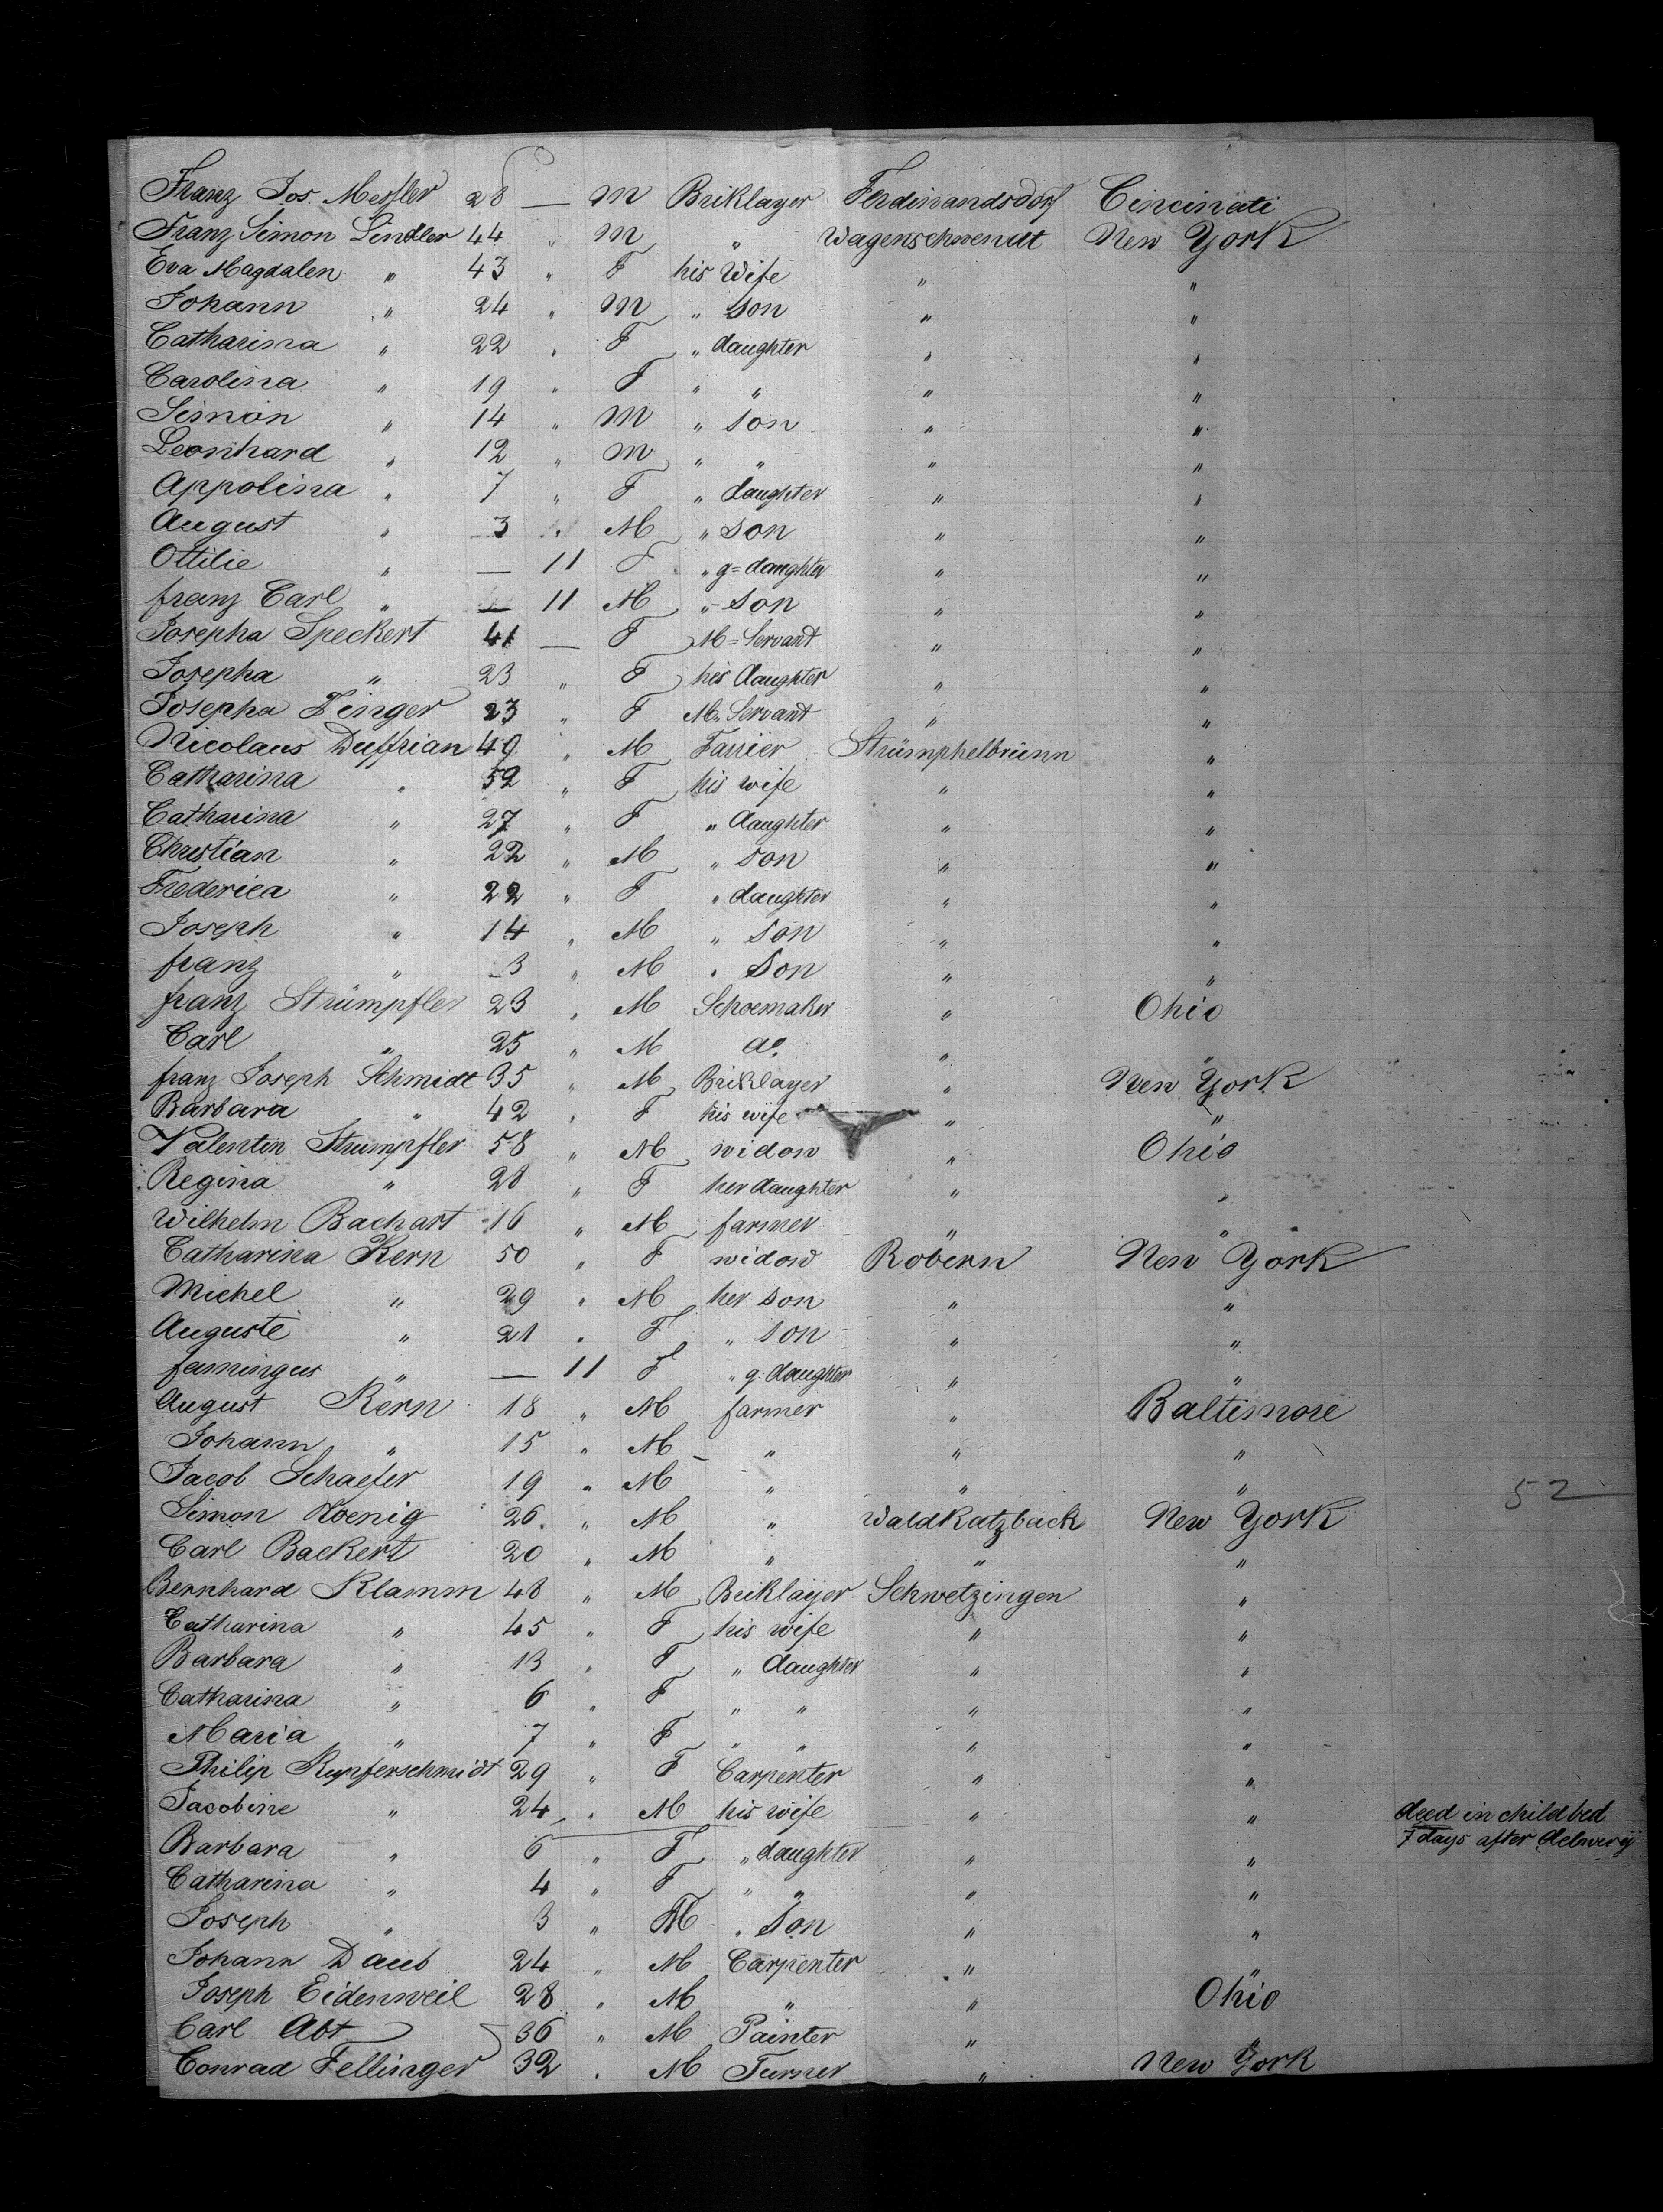 Franz Jos. Messler 28 — M Briklayer Ferdinandsdorf Cincinati
Franz Simon Lindler 44 " M " Wagenschwendt New York
Eva Magdalen " 43 " F his Wife " "
Johann " 24 " M " Son " "
Catharina " 22 " F " daughter " "
Carolina " 19 " F " " " "
Simon " 14 " M " Son " "
Leonhard " 12 " M " " " "
Appolina " 7 " F " daughter " "
August " 3 " M " Son " "
Ottilie " — 11 F " g=daughter " "
franz Carl " — 11 M " Son " "
Josepha Speckert 41 — F M=Servant " "
Josepha " 23 " F his daughter " "
Josepha Zinger 23 " F M. Servant " "
Nicolaus Duffrian 49 " M Farrier Strümphelbrünn "
Catharina " 52 " F his wife " "
Catharina " 27 " F " daughter " "
Christian " 22 " M " son " "
Frederica " 22 " F " daughter " "
Joseph " 14 " M " Son " "
franz " 3 " M " Son " "
franz Strümpfler 23 " M Schoemaker " Ohio
Carl " 25 " M do. " "
franz Joseph Schmidt 35 " M Briklayer " New York
Barbara " 42 " F his wife " "
Valentin Strumpfler 58 " M widow " Ohio
Regina " 28 " F her daughter " "
Wilhelm Bachart 16 " M farmer " "
Catharina Kern 50 " F widow Robern New York
Michel " 29 " M her son " "
Auguste " 21 " F " son " "
" — 11 F " g. daughter " "
August Kern 18 " M farmer " Baltimore
Johann " 15 " M " " "
Jacob Schaefer 19 " M " " "
52
Simon Hoenig 26 " M " WaldKatzback New York
Carl Backert 20 " M " " "
Bernhard Klamm 48 " M Briklayer Schwetzingen "
Catharina " 45 " F his wife " "
Barbara " 13 " F " daughter " "
Catharina " 6 " F " " " "
Maria " 7 " F " " " "
Philip Kupferschmidt 29 " F Carpenter " "
Jacobine " 24 " M his wife " " died in childbed
7 days after delivery
Barbara " 6 " F " daughter " "
Catharina " 4 " F " " " "
Joseph " 3 " M " Son " "
Johann Daub 24 " M Carpenter " "
Joseph Eidenweil 28 " M " " Ohio
Carl Abt 36 " M Painter "
Conrad Fellinger 32 " M Turner " New York